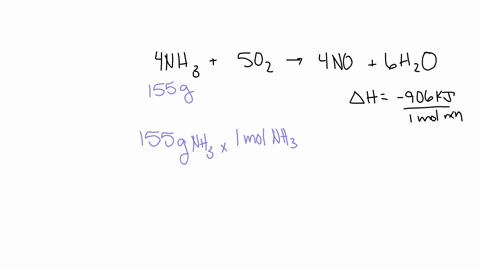 4NH₃ + 5O₂ → 4NO + 6H₂O
155g
ΔH = -906 KJ
1 mol rxn
155g NH₃ x 1 mol NH₃